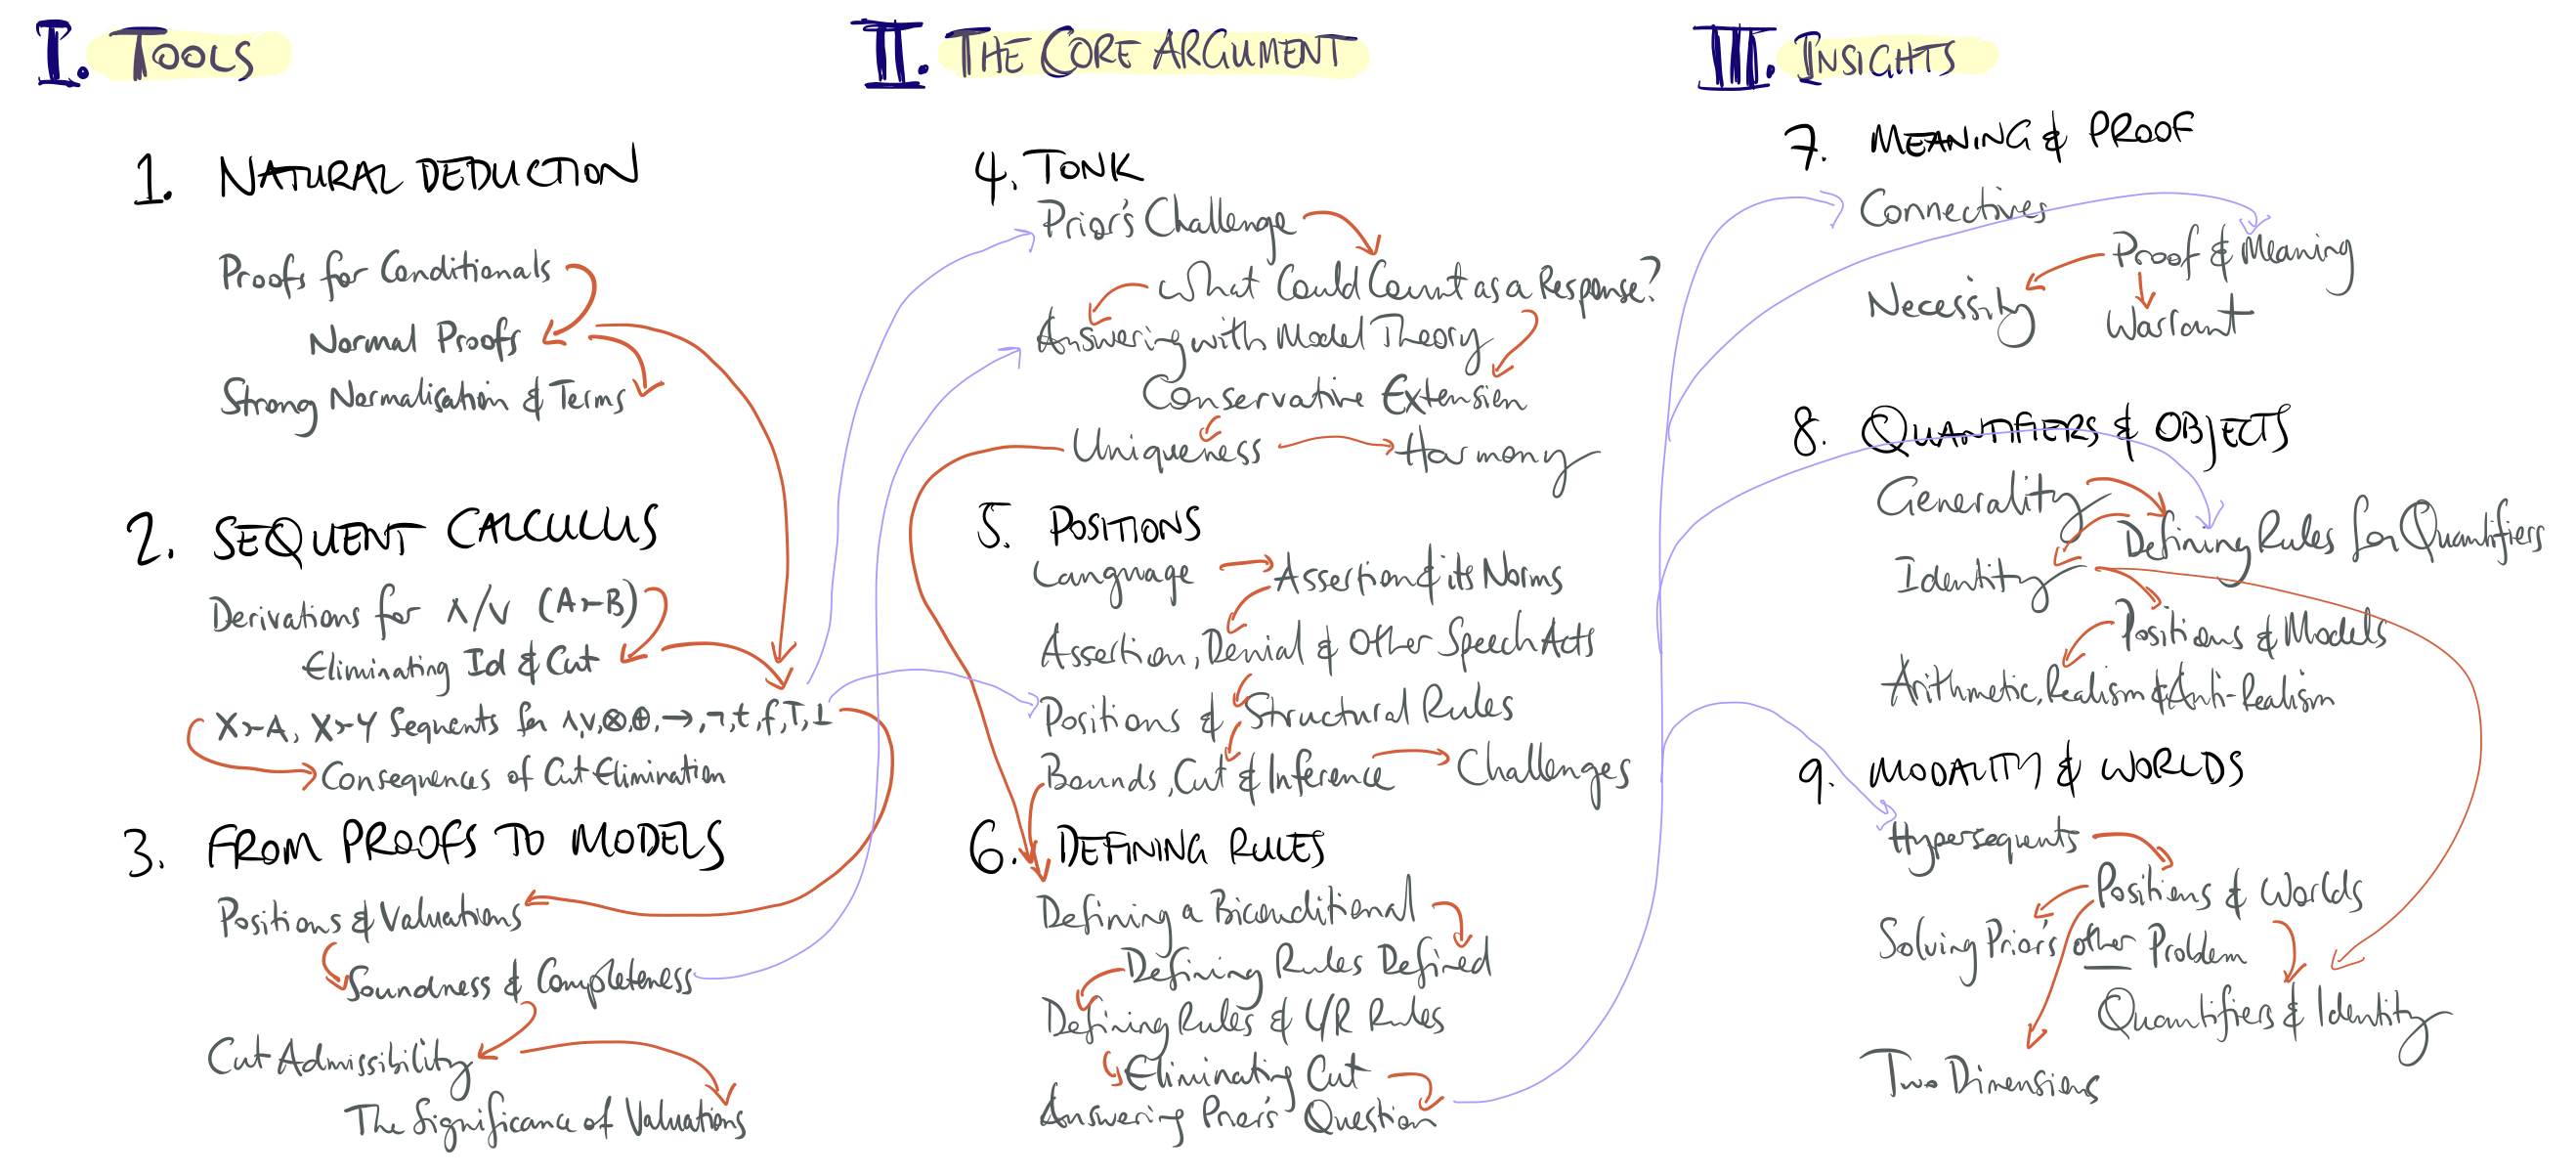 I. TOOLS
1. NATURAL DEDUCTION
Proofs for Conditionals
Normal Proofs
Strong Normalisation & Terms
2. SEQUENT CALCULUS
Derivations for ∧/∨ (A≻B)
Eliminating Id & Cut
X≻A, X≻Y Sequents for ∧,∨,⊗,⊕,→,¬,t,f,⊤,⊥
Consequences of Cut Elimination
3. FROM PROOFS TO MODELS
Positions & Valuations
Soundness & Completeness
Cut Admissibility
The Significance of Valuations
II. THE CORE ARGUMENT
4. TONK
Prior's Challenge
What Could Count as a Response?
Answering with Model Theory
Conservative Extension
Uniqueness
Harmony
5. POSITIONS
Language
Assertion & its Norms
Assertion, Denial & Other Speech Acts
Positions & Structural Rules
Bounds, Cut & Inference
Challenges
6. DEFINING RULES
Defining a Biconditional
Defining Rules Defined
Defining Rules & L/R Rules
Eliminating Cut
Answering Prior's Question
III. INSIGHTS
7. MEANING & PROOF
Connectives
Proof & Meaning
Necessity
Warrant
8. QUANTIFIERS & OBJECTS
Generality
Defining Rules for Quantifiers
Identity
Positions & Models
Arithmetic, Realism & Anti-Realism
9. MODALITY & WORLDS
Hypersequents
Positions & Worlds
Solving Prior's other Problem
Quantifiers & Identity
Two Dimensions